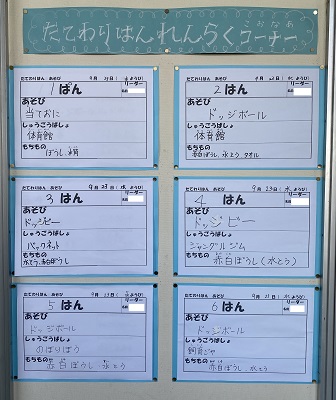 たてわりはんれんらくコーナー
こおなあ
たてわりはん あそび 9月23日(水ようび)
リーダー
1ぱん
あそび
当ておに
しゅうごうばしょ
体育館
もちもの
ぼうし、
たてわりはん あそび 9月23日(水ようび)
リーダー
2はん
あそび
ドッジボール
しゅうごうばしょ
体育館
もちもの
赤白ぼうし、水とう、タオル
たてわりはん あそび 9月23日(水ようび)
リーダー
3はん
あそび
ドッジビー
しゅうごうばしょ
バックネット
もちもの
水とう、赤白ぼうし
たてわりはん あそび 9月23日(水ようび)
リーダー
4はん
あそび
ドッジビー
しゅうごうばしょ
ジャングルジム
もちもの
赤白ぼうし(水とう)
たてわりはん あそび 9月23日(水ようび)
リーダー
5はん
あそび
ドッジボール
しゅうごうばしょ
のぼりぼう
もちもの
赤白ぼうし 水とう
たてわりはん あそび 9月23日(水ようび)
リーダー
6ぱん
あそび
ドッジボール
しゅうごうばしょ
飼育ごや
もちもの
赤白ぼうし、水とう